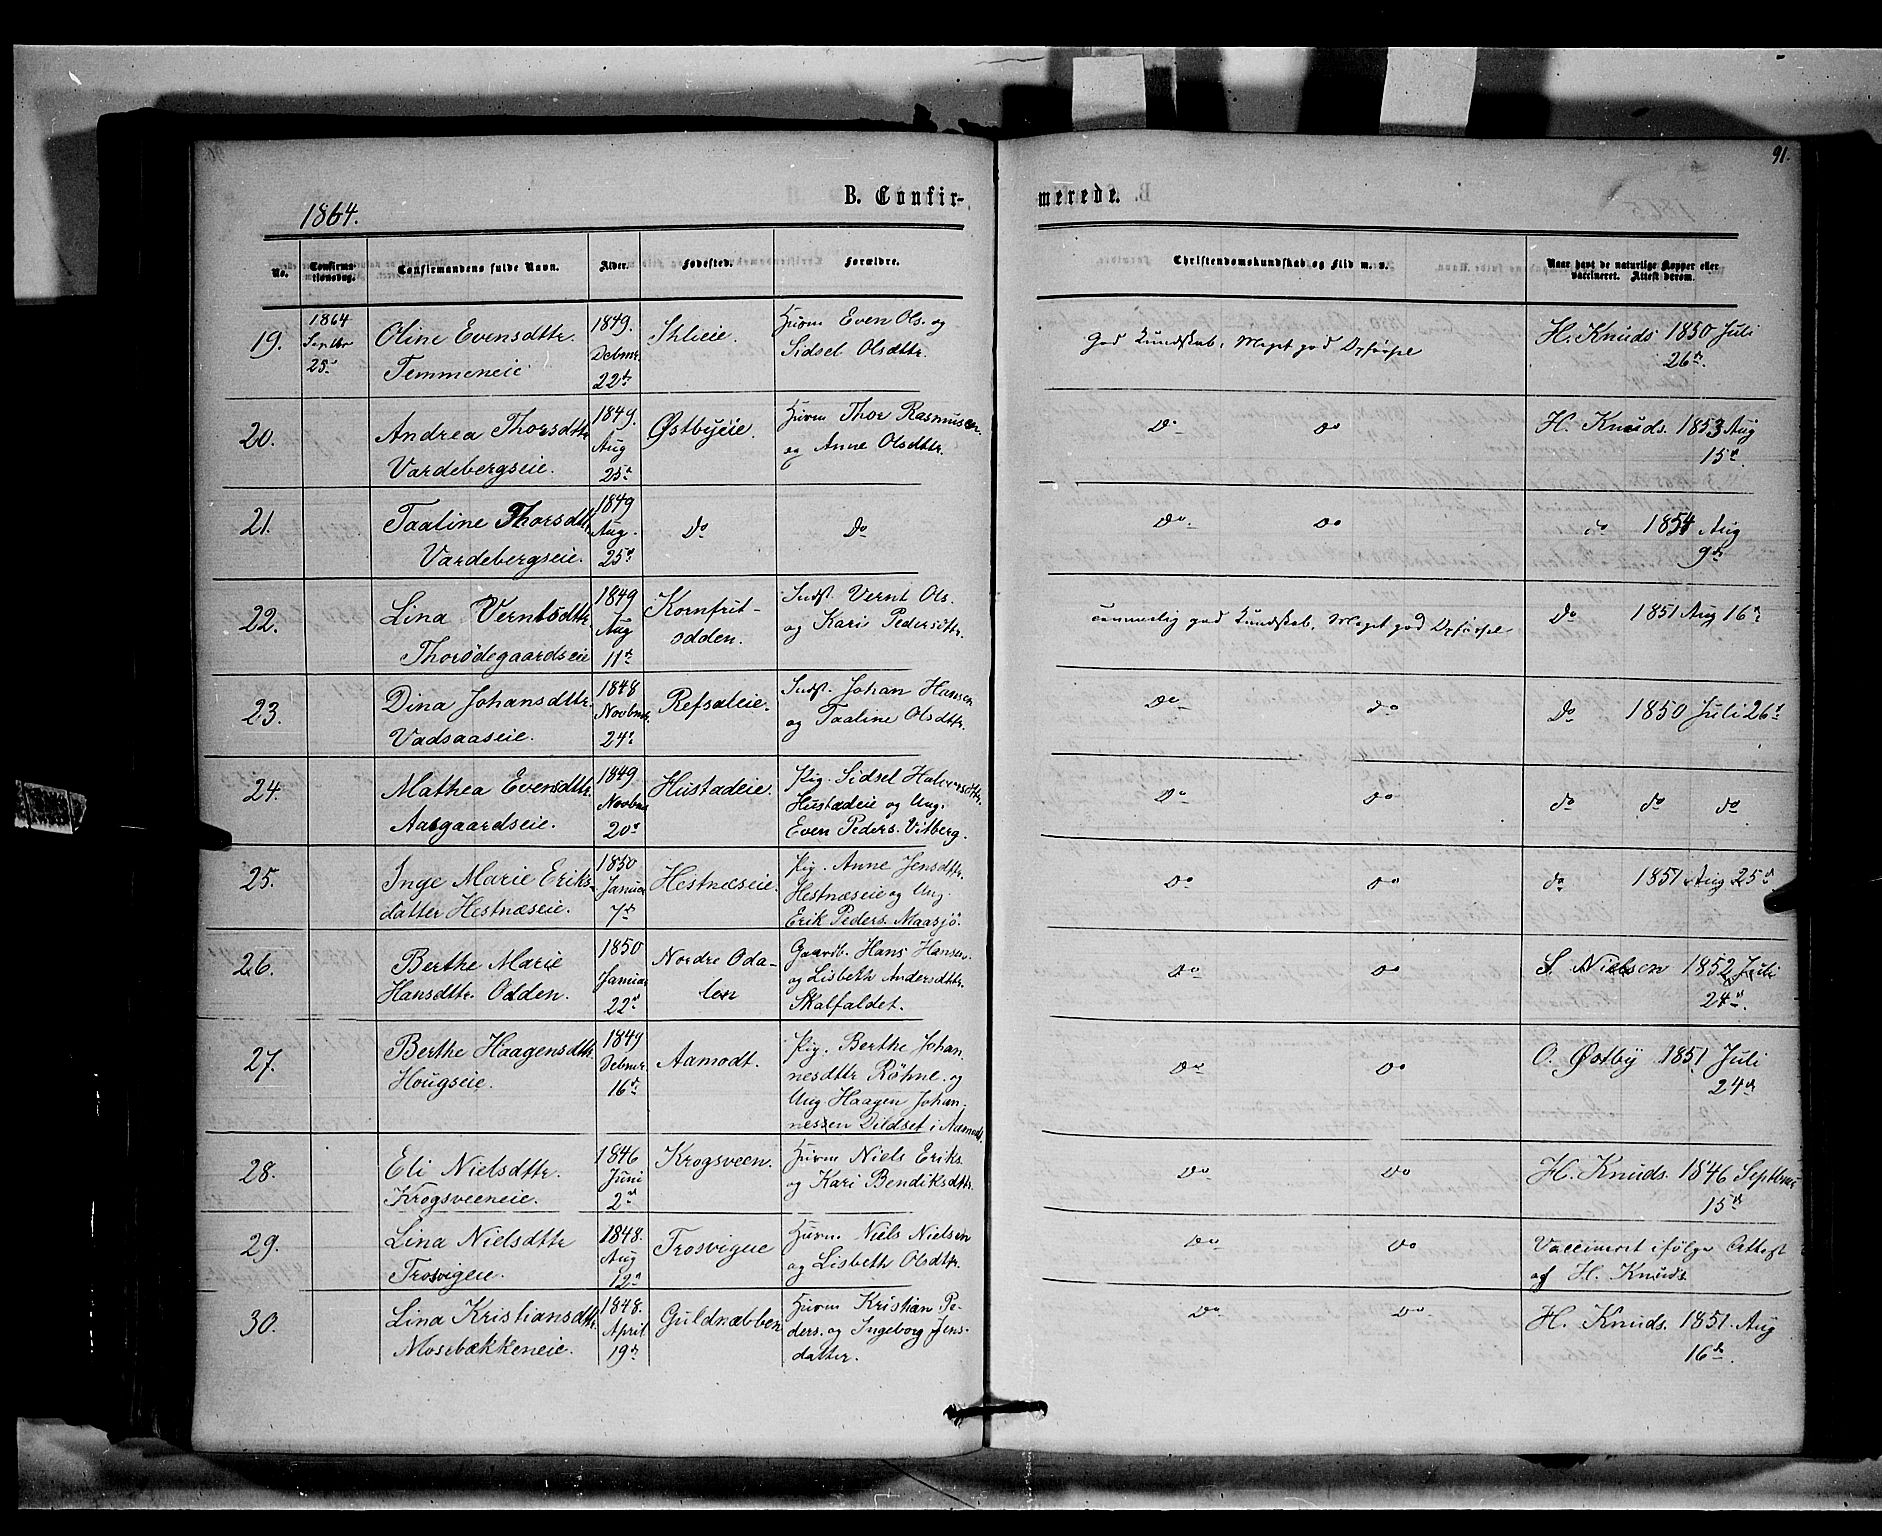 91.
1864.
B. Confir-
merede.
No.
Confirma-
tionsdag.
Confirmandens fulde Navn.
Alder.
Fødested.
Forældre.
Christendomskundskab og Flid m. v.
Naar havt de naturlige Kopper eller
vaccineret. Attest derom.
19.
1864
Septbr
25
Oline Evensdttr.
Temmeneie
1849.
Debmr.
22
Huvm Even Ols. og
Sidsel Olsdttr.
god Kundskab, Meget god Opførsel
H. Knuds 1850 Juli
26
20.
Andrea Thorsdttr
Vardebergseie.
1849.
Aug
25
Østbyeie.
Huvm Thor Rasmusen.
og Anne Olsdttr.
Do Do
H. Knuds. 1853 Aug
15
21.
Taaline Thorsdttr
Vardebergseie.
1849
Aug.
25
Do
Do
Do Do
do 1854 Aug
9
22.
Lina Verntsdttr
Thorsdegaardseie
1849
Aug
11
Kornfrit-
odden.
Indst. Vernt Ols.
og Kari Pedersdttr.
temmelig god Kundskab, Meget god Opførsel
Do 1851 Aug 16
23.
Dina Johansdttr.
Vadsaaseie.
1848
Novbmr.
24
Refsaleie.
Indst. Johan Hansen
og Taaline Olsdttr.
Do do
Do 1850 Juli 26
24.
Mathea Evensdttr
Aasgaardseie.
1849
Novbmr
20
Hustadeie.
Pig. Sidsel Halvorsdttr.
Hustadeie og Ung.
Even Peders. Vitberg.
Do Do
do do do
25.
Inge Marie Eriks-
datter Hestnæseie.
1850
Januar
7
Hestnæseie.
Pig. Anne Jensdttr.
Hestnæseie og Ung
Erik Peders. Maasjö.
Do Do
do 1851 Aug 25
26.
Berthe Marie
Hansdttr. Odden.
1850
Januar
22
Nordre Oda-
len
Gaardb. Hans Hansen
og Lisbeth Andersdttr.
Skalfaldet.
Do Do
S. Nielsen 1852 Juli
24
27.
Berthe Haagensdttr.
Hougseie.
1849
Debmr.
16
Aamodt.
Pig. Berthe Johan-
nesdttr Röhne. og
Ung Haagen Johan-
nessen Dildset i Aamodt.
Do Do
O. Østby 1851 Juli
24
28.
Eli Nielsdttr.
Krogsveeneie.
1846
Juni
2
Krogsveen.
Huvm Niels Eriks.
og Kari Bendiksdttr.
Do Do
H. Knuds. 1846 Septbmr
15
29.
Lina Nielsdttr
Trosvigeie.
1848.
Aug
12
Trosvigeie
Huvm Niels Nielsen
og Lisbeth Olsdttr.
Do Do
Vaccineret ifölge Attest
af H. Knuds
30.
Lina Kristiansdttr.
Mosebækkeneie.
1848.
April
19
Guldnæbben
Huvm Kristian Pe-
ders. og Ingeborg Jens-
datter.
Do Do
H. Knuds. 1851. Aug
16